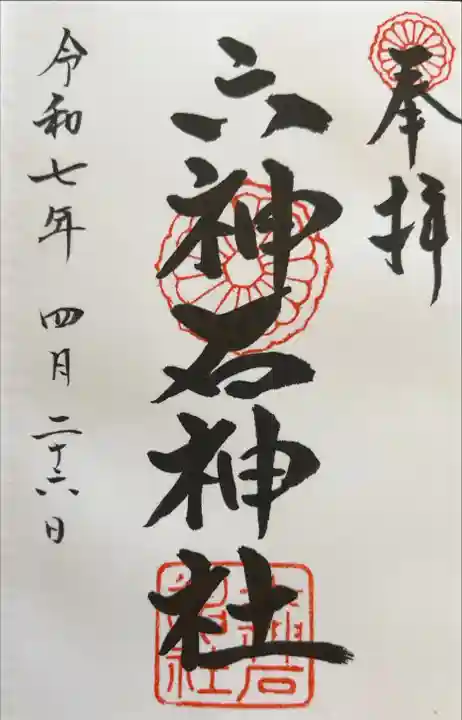 奉拝
六神石神社
令和七年 四月二十六日
六神石
神社